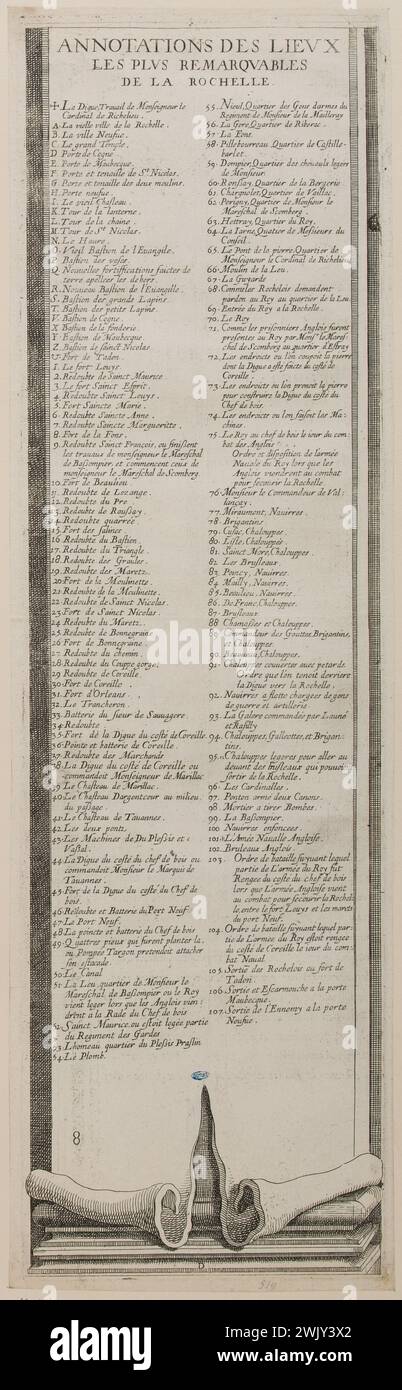 ANNOTATIONS DES LIEVX
LES PLVS REMARQVABLES
DE LA ROCHELLE
La Digue, Travail de Monseigneur le
Cardinal de Richelieu.
A. La vielle ville de la Rochelle.
B. La ville Neufue.
C. Le grand Temple.
D. Porte de Cogne
E. Porte de Maubecque.
F. Porte et tenaille de St. Nicolas.
G. Porte et tenaille des deux moulins.
H. Porte neufue
I. Le vieil Chasteau
K. Tour de la lanterne.
L. Tour de la chaine.
M. Tour de St. Nicolas.
N. Le Haure.
O. Vieil Bastion de l'Evangile.
P. Bastion des vases.
Q. Nouvelles fortiffications faictes de
terre apellees les dehors.
R. Nouveau Bastion de l'Evangille.
S. Bastion des grands Lapins.
T. Bastion des petits Lapins.
V. Bastion de Cogne.
X. Bastion de la fonderie
Y. Bastion de Maubecque
Z. Bastion de sainct Nicolas
Fort de Tadon.
1. Le fort Louys
2. Redoubte de Sainct Maurice
3. Le fort Sainct Esprit.
4. Redoubte Sainct Louys.
5. Fort Saincte Marie.
6. Redoubte Saincte Anne.
7. Redoubte Saincte Marguerite.
8. Fort de la Fons.
9. Redoubte Sainct François, ou finissent
les travaux de monseigneur le Mareschal
de Bassompier, et commencent ceux de
monseigneur le Mareschal de Scomberg
10. Fort de Beaulieu
11. Redoubte de Lozange.
12. Redoubte du Pre
13. Redoubte de Roussay.
14. Redoubte quarree
15. Fort des salines
16. Redoubte du Bastion.
17. Redoubte du Triangle.
18. Redoubte des Graules.
19. Redoubte des Maretz.
20. Fort de la Moulinette.
21. Redoubte de la Moulinette.
22. Redoubte de Sainct Nicolas
23. Fort de Sainct Nicolas.
24. Redoubte du Maretz.
25. Redoubte de Bonnegrane
26. Fort de Bonnegrane
27. Redoubte du chemin.
28. Redoubte du Couppe gorge.
29. Redoubte de Coreille.
30. Fort de Coreille.
31. Fort d'Orleans.
32. Le Trancheron.
33. Batterie du sieur de Sauuagere.
34. Redoubte
35. Fort de la Digue du costé de Coreille.
36. Pointe et batterie de Coreille.
37. Redoubte des Marchands
38. La Digue du costé de Coreille ou
commandoit Monseigneur de Marillac
39. Le Chasteau de Marillac.
40. Le Chasteau Dargentcour au milieu
du passage.
41. Le Chasteau de Tauannes.
42. Les deux ponts.
43. Les Machines de Du Plessis et
44. La Digue du costé du chef de bois ou
commandoit Monsieur le Marquis de
Tauannes.
45. Fort de la Digue du costé du Chef de
bois.
46. Redoubte et Batterie du Port Neuf
47. Le Port Neuf.
48. La pointe et batterie du Chef de bois
49. Quattres pieux qui furent planter la
ou Pompee Targon pretendoit attacher
son estacade.
50. Le Canal
51. La Leu quartier de Monsieur le
Mareschal de Bassompier ou le Roy
vient loger lors que les Anglois vien
drent a la Rade du Chef de bois
52. Sainct Maurice ou estoit logée partie
du Regiment des Gardes
53. Lhomeau quartier du Plessis Praslin
54. Le Plomb.
55. Nieul, Quartier des Gens darmes du
Regiment de Monsieur de la Mailleray
56. La Gore, Quartier de Riberac.
57. La Fons.
58. Pilleboureau Quartier de Castille-
barlet.
59. Dompier, Quartier des cheuauls legers
de Monsieur
60. Ronssay, Quartier de la Bergerie
61. Charpiolet, Quartier de Vaillac.
62. Perigny, Quartier de Monsieur le
Mareschal de Scomberg.
63. Hettray, Quartier du Roy.
64. La Jarne, Quartier de Messieurs du
Conseil.
65. Le Pont de la pierre, Quartier de
Monseigneur le Cardinal de Richelieu
66. Moulin de la Leu.
67. La Guyarde
68. Comme les Rochelois demandent
pardon au Roy au quartier de la Leu.
69. Entrée du Roy a la Rochelle.
70. Le Roy
71. Comme les prisonniers Anglois furent
presentes au Roy par Monsr. le Mares-
chal de Scomberg au quartier d'Estray
72. Les endroicts ou l'on coupoit la pierre
dont la Digue a esté faicte du costé de
Coreille.
73. Les endroicts ou l'on prenoit la pierre
pour construire la Digue du costé du
Chef de bois.
74. Les endroicts ou l'on faisoit les Ma-
chines.
75. Le Roy au chef de bois le iour du com-
bat des Anglois
Ordre et disposition de larmée
Navale du Roy lors que les
Anglois viendrent au combat
pour secourir la Rochelle
76. Monsieur le Commandeur de Val
lançay.
77. Miraumont, Nauirres.
78. Brigantins
79. Cusac, Chalouppes.
80. Lisle, Chalouppes.
81. Sainct More, Chalouppes.
82. Les Brusleaux
83. Poincy, Nauirres.
84. Mailly, Nauirres.
85. Beaulieu, Nauirres
86. De Franc, Chalouppes.
87. Brusleaux
88. Chamasses et Chalouppes.
89. Commandeur des Gouttes, Brigantins,
et Chalouppes.
90. Chalouppes.
91. Chalouppes couuertes auec petards.
Ordre que lon tenoit derriere
la Digue vers la Rochelle.
92. Nauirres a flotte chargees de gens
de guerre et artillerie
93. La Galere commandée par Launé
et Rasilly
94. Challouppes, Galleottes, et Brigan-
tins.
95. Chalouppes legeres pour aller au
deuant des brusleaux qui pouuoit
sortir de la Rochelle.
96. Les Cardinalles.
97. Ponton armé deux Canons.
98. Mortier a tirer Bombes.
99. La Bassompier.
100. Nauirres enfoncees.
101. L'Armée Naualle Angloise.
102. Bruleaux Anglois.
103. Ordre de bataille suyuant lequel
partie de L'armée du Roy fut
Rengée du costé du chef de bois
lors que L'armée Angloise vient
au combat pour secourir la Rochel
le, entre le fort Louys et les marets
du port Neuf.
104. Ordre de bataille suyuant lequel par-
tie de L'armee du Roy estoit rengée
du costé de Coreille le iour du com
bat Naual
105. Sortie des Rochelois au fort de
Tadon.
106. Sortie et Escarmouche a la porte
Maubecque.
107. Sortie de l'Ennemy a la porte
Neufue.
8
D
519
alamy
Image ID: 2WJY3X2
www.alamy.com